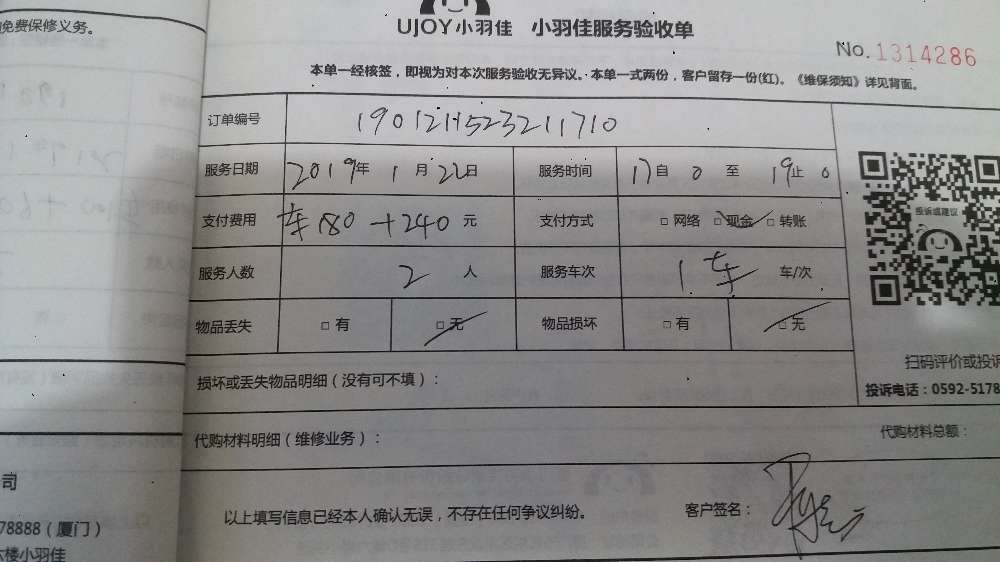 免费保修义务。
UJOY小羽佳 小羽佳服务验收单
No.1314286
本单一经核签，即视为对本次服务验收无异议。本单一式两份，客户留存一份(红)。《维保须知》详见背面。
订单编号
服务日期 2019年 1月 22日 服务时间 17自 0 至 19止 0
支付费用 车180+240元 支付方式 □网络 □现金 □转账
投诉或建议
服务人数 2人 服务车次 1车 车/次
物品丢失 □有 □无 物品损坏 □有 □无
扫码评价或投诉
损坏或丢失物品明细（没有可不填）：
投诉电话：0592-5178
代购材料明细（维修业务）： 代购材料总额：
司
以上填写信息已经本人确认无误，不存在任何争议纠纷。 客户签名：
78888（厦门）
楼小羽佳